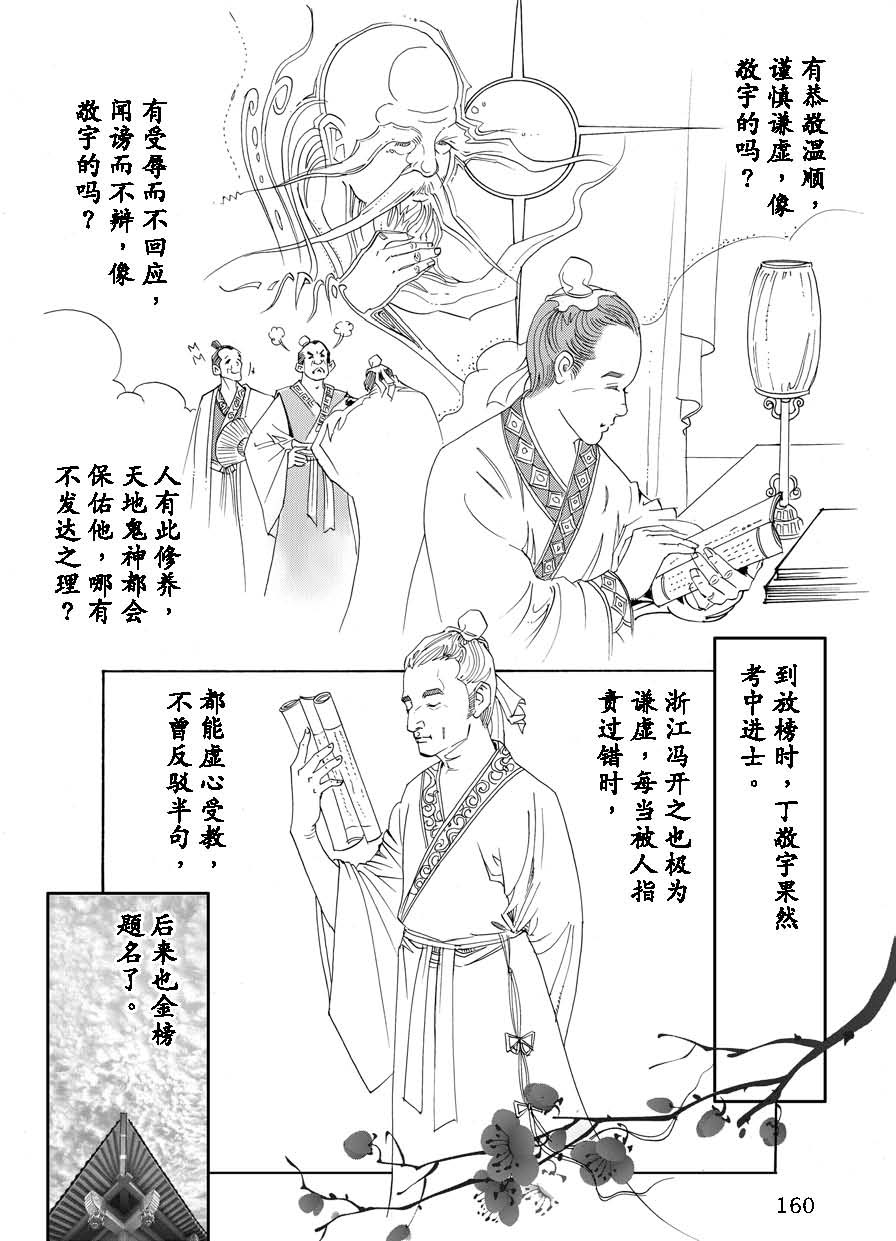 有恭敬温顺，
谨慎谦虚，像
敬宇的吗？
有受辱而不回应，
闻谤而不辩，像
敬宇的吗？
人有此修养，
天地鬼神都会
保佑他，哪有
不发达之理？
到放榜时，丁敬宇果然
考中进士。
浙江冯开之也极为
谦虚，每当被人指
责过错时，
都能虚心受教，
不曾反驳半句，
后来也金榜
题名了。
160